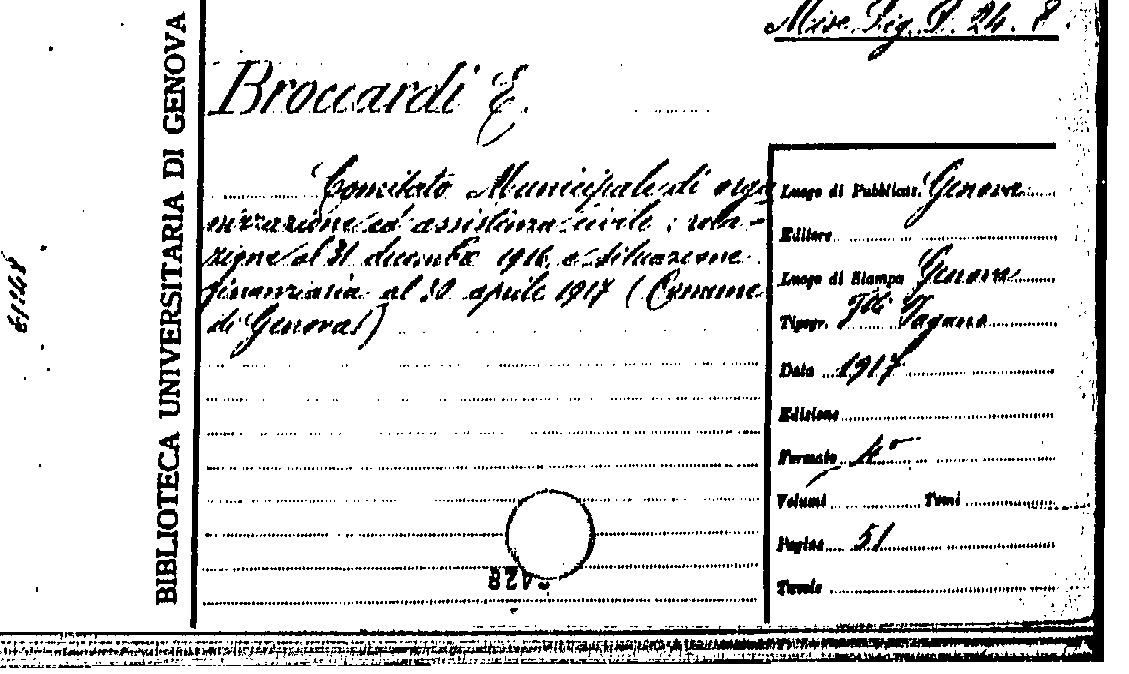 Misc. Lig. P. 24. 8.
BIBLIOTECA UNIVERSITARIA DI GENOVA
Broccardi E.
Comitato Municipale di orga
nizzazione ed assistenza civile : rela-
zione al 31 decembre 1916 e situazione
finanziaria al 30 aprile 1917 (Comune
di Genova)
Luogo di Pubblicaz. Genova
Editore
Luogo di Stampa Genova
Tipogr. F.lli Pagano
Data 1917
Edizione
Formato 4°
Volumi Tomi
Pagine 51
Tavole